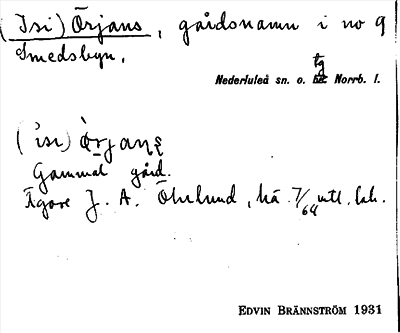 (Isi) Örjans, gårdsnamn i no 9
Smedsbyn.
tg
Nederluleå sn. o. Norrb. l.
('isi) örjan̥s̥
Gammal gård.
Ägare J. A. Öhrlund, hä 7/64 mtl. lah.
EDVIN BRÄNNSTRÖM 1931